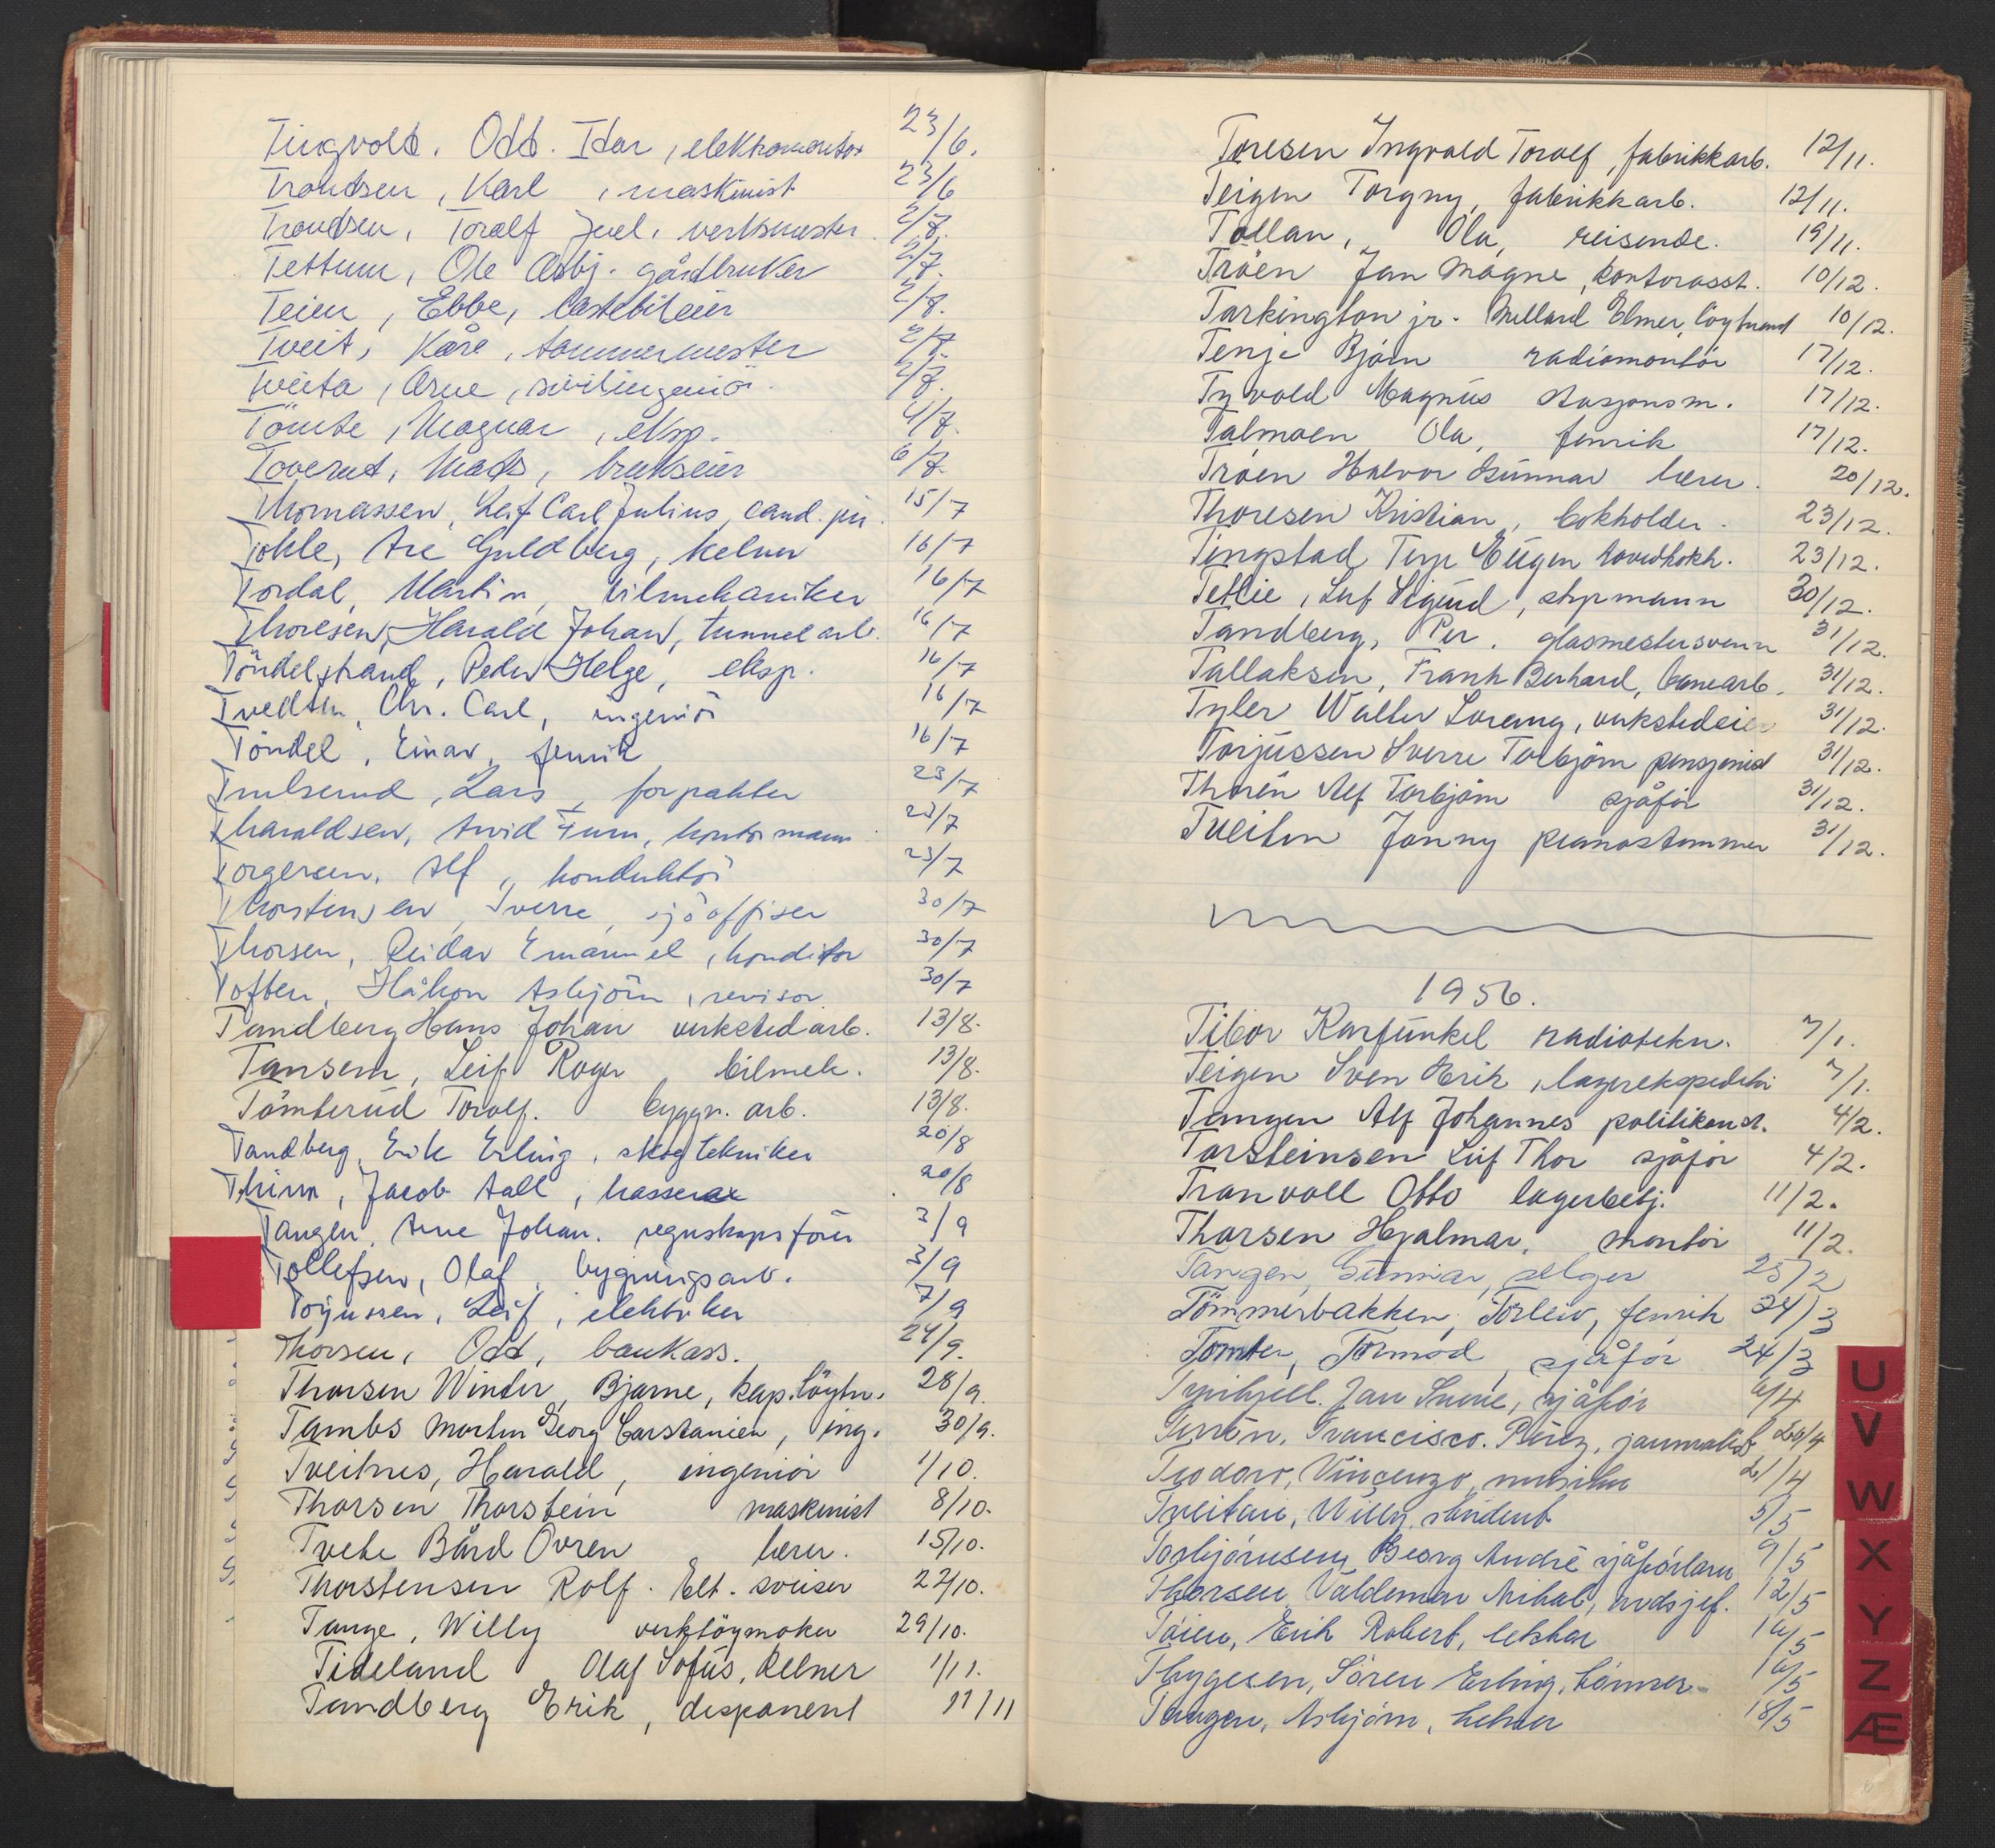 Tingvold. Odd. Idar, elektromontør 23/6.
Trondsen, Karl, maskinist 23/6
Trondsen, Toralf Juel, verksmester. 2/7.
Tettum, Ole Asbj. gårdbruker 2/7.
Teien, Ebbe, lastebileier 2/7.
Tveit, Kåre, tømmermester 2/7.
Tveita, Arne, sivilingeniör. 2/7.
Tömte, Magnar, eksp. 4/7.
Toverud, Mads, brukseier 6/7.
Thomassen, Leif Carl Julius, cand. jur. 15/7
Tokle, Are Guldberg, kelner 16/7
Tordal, Martin, bilmekaniker 16/7
Thoresen, Harald Johan, tunnelarb. 16/7
Töndelstrand, Peder Helge, eksp. 16/7
Tvedten, Chr. Carl, ingeniör 16/7
Töndel, Einar, fenrik 16/7
Trulserud, Lars, forpakter 23/7
Tharaldsen, Arvid Furu, kontormann 23/7
Torgersen, Alf, konduktör 23/7
Thorstensen, Sverre, sjöoffiser 30/7
Thorsen, Reidar Emanuel, konditor 30/7
Toften, Håkon Asbjörn, revisor 30/7
Tandberg Hans Johan verkstedarb. 13/8.
Tansem, Leif Roger, bilmek. 13/8.
Tömterud Toralf. byggn. arb. 13/8.
Tandberg, Erik Erling, skogtekniker 20/8
Thinn, Jacob Aall, kasserer 20/8
Tangen, Arne Johan. regnskapsförer 3/9
Tollefsen, Olaf, bygningsarb. 3/9
Torjussen, Leif, elektriker 7/9
Thorsen, Odd, bankass. 24/9.
Thorsen Winder, Bjarne, kap.löytn. 28/9.
Tambs Morten Georg Carstanien, ing. 30/9.
Tveitnes, Harald, ingeniör 1/10.
Thorsen Thorstein maskinist 8/10.
Tvete Bård Ovren lærer. 15/10.
Thorstensen Rolf. Elt. sveiser 22/10.
Tange, Willy verktöymaker 29/10.
Tideland Olaf Sofus, kelner 1/11.
Tandberg Erik, disponent 11/11
Toresen Ingvald Toralf, fabrikkarb. 12/11.
Teigen Torgny, fabrikkarb. 12/11.
Tollan, Ola, reisende. 19/11.
Tröen Jan Magne, kontorasst. 10/12.
Tarkington jr. Millard Elmer, löytnant 10/12.
Tenje Björn radiomontör 17/12.
Tyvold Magnus stasjonsm. 17/12.
Talmoen Ola, fenrik 17/12.
Tröen Halvor Gunnar lærer. 20/12.
Thoresen Kristian, bokholder. 23/12.
Tingstad Terje Eugen hovedbokh. 23/12.
Tetlie, Leif Sigurd, styrmann 30/12.
Tandberg, Per, glasmestersvenn 31/12.
Tallaksen, Frank Berhard, banearb. 31/12.
Tyler Walter Loreng, verkstedeier 31/12.
Torjussen Sverre Torbjörn pensjonist 31/12.
Thorén Alf Torbjörn sjåför 31/12.
Tveiten Jonny pianostemmer 31/12.
1956.
Tibor Karfunkel radiotekn. 7/1.
Teigen Sven Erik, lagerekspeditör 7/1.
Tangen Alf Johannes politikonst. 4/2.
Torsteinsen Leif Thor sjåför 4/2.
Tranvoll Otto lagerbetj. 11/2.
Thorsen Hjalmar, montör 11/2.
Tangen, Gunnar, selger 25/2
Tömmerbakken, Torleiv, fenrik 24/3
Tomter, Tormod, sjåför 24/3
Tyrihjell. Jan Snorre, sjåför 6/4
Turón, Francisco. Pérez, journalist 20/4
Teodoro, Vincenzo, musiker 21/4
Tveitan, Willy, student 5/5
Torbjörnsen, Georg André sjåförlærer 9/5
Thorsen Valdemar Mihal, avdsjef. 12/5
Töien, Erik Robert, lektor 16/5
Thygesen, Sören Erling, tömrer 16/5
Tangen, Asbjörn, kelner 18/5
U
V
W
X
Y
Z
Æ